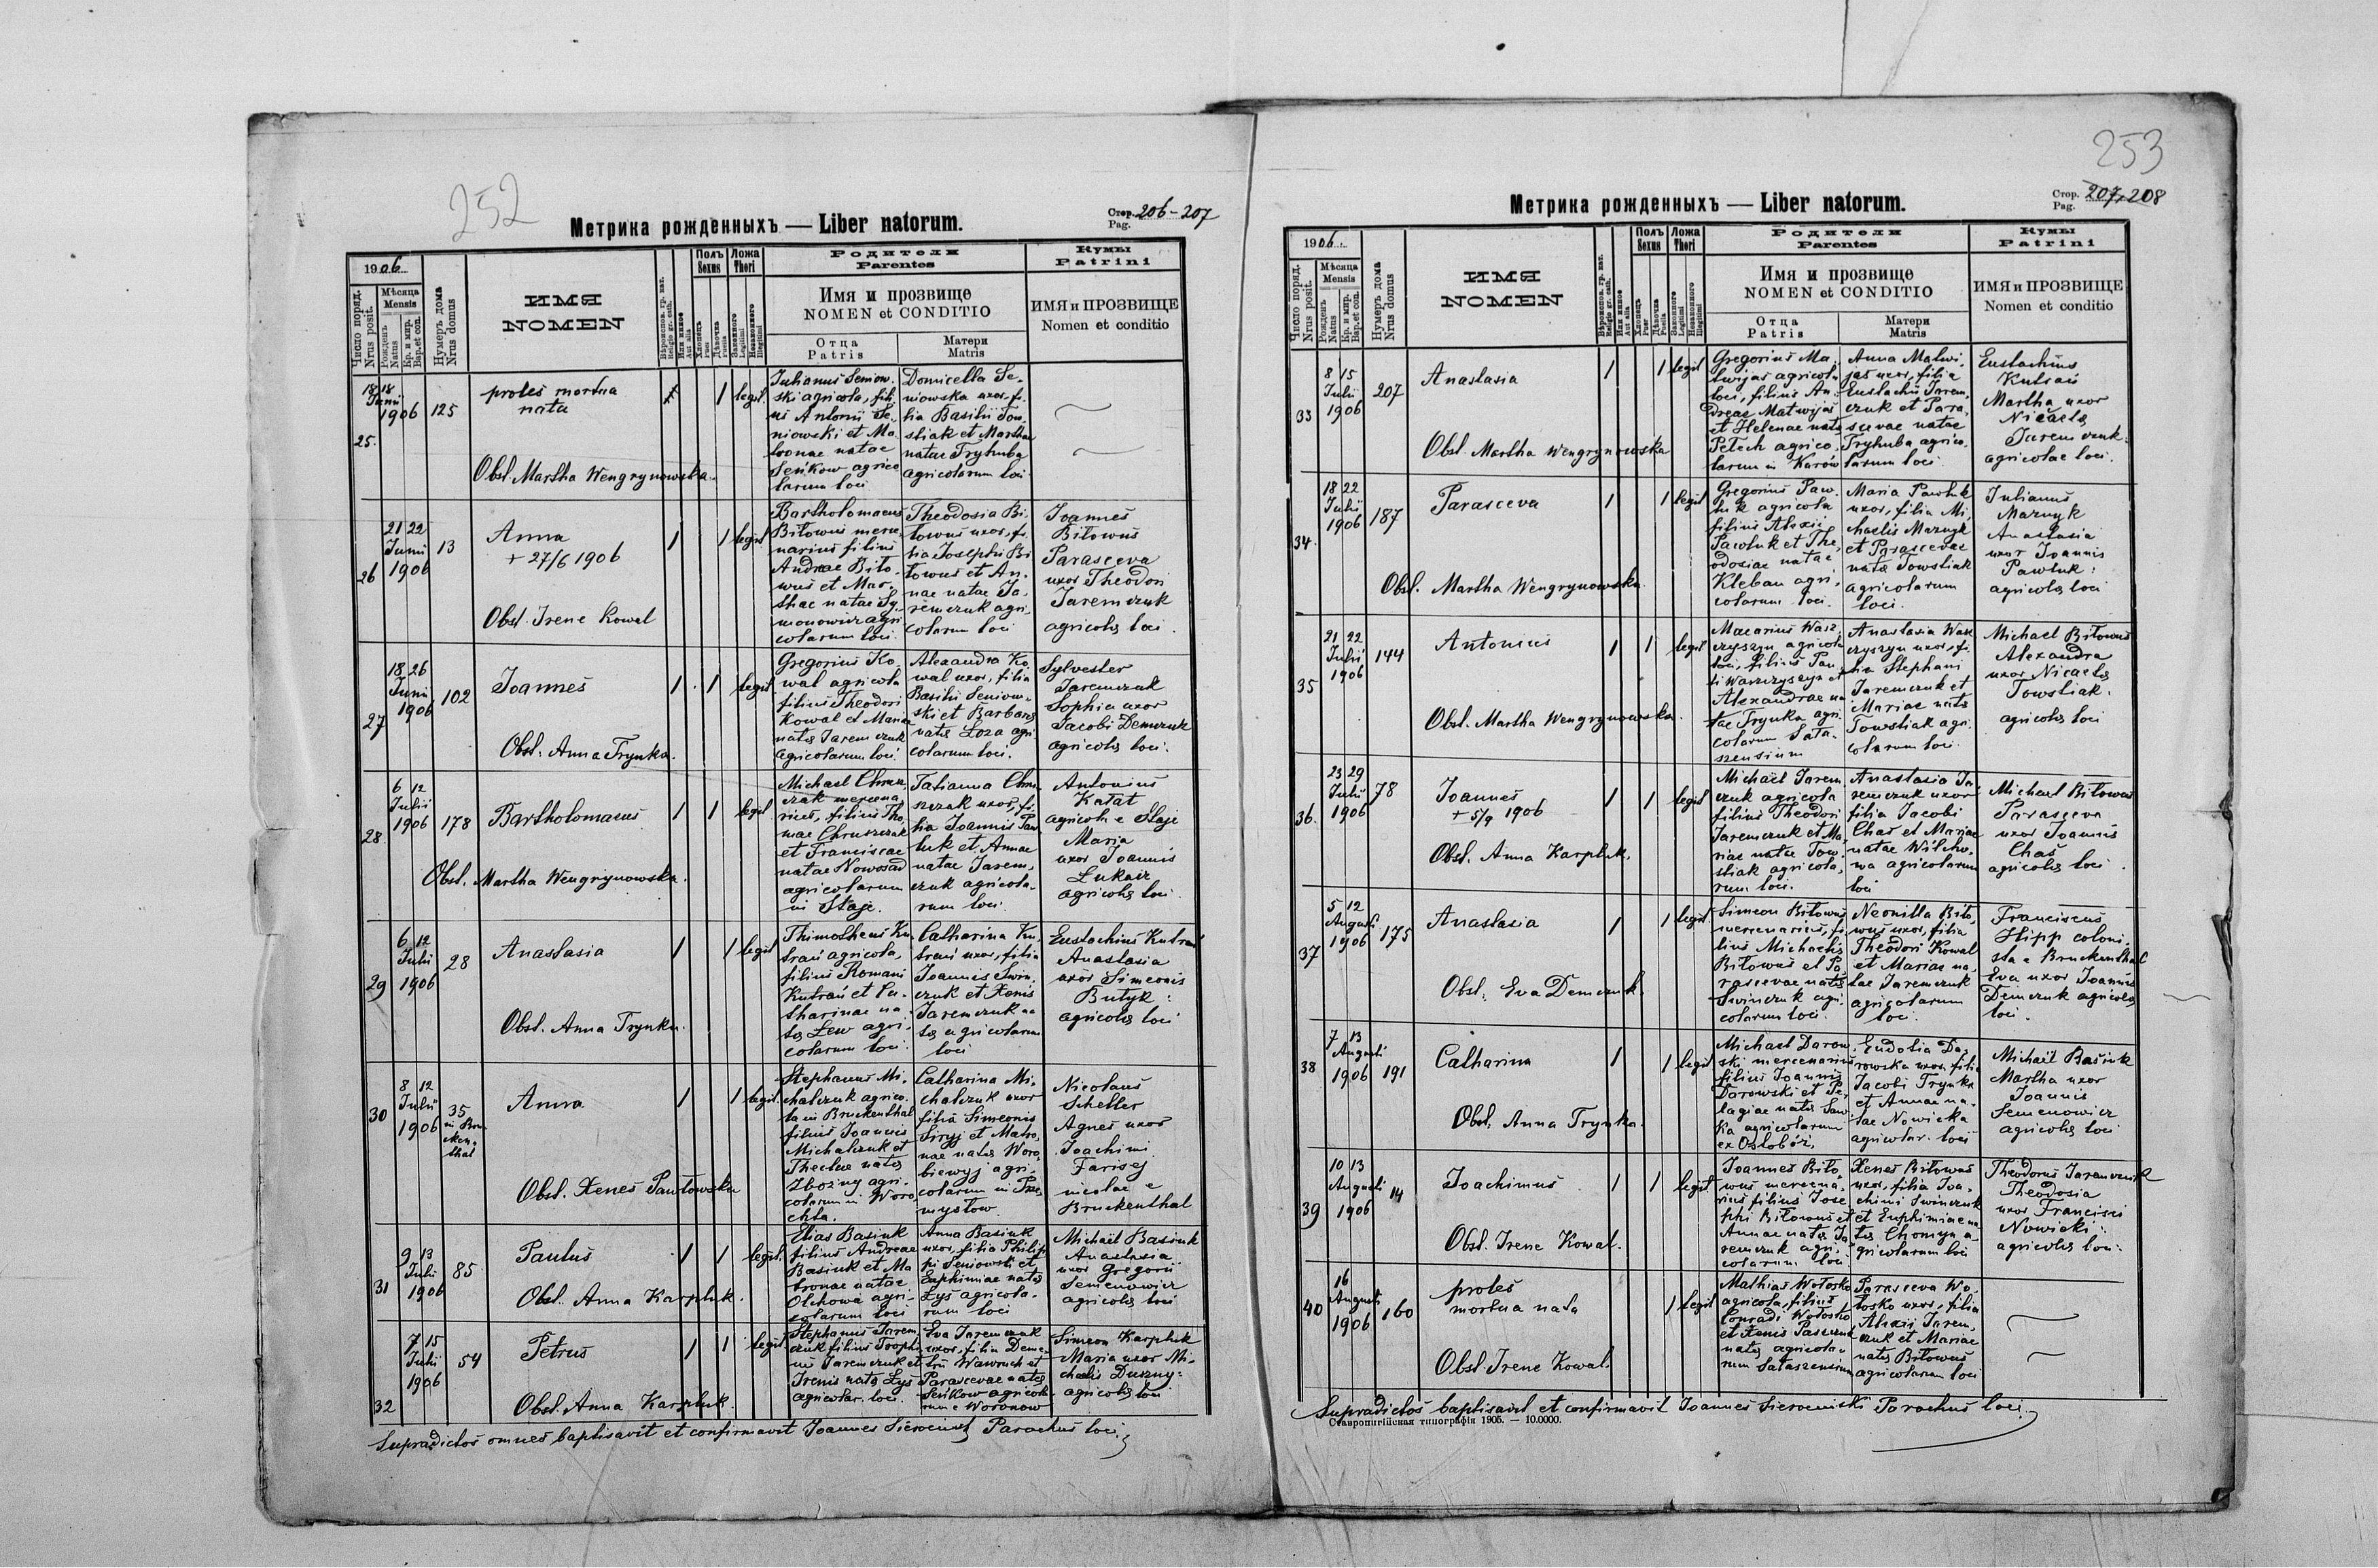 252
Метрика рожденныхъ — Liber natorum.
Стор. Pag. 206-207
1906
Число поряд. Nrus posit.
Мѣсяца Mensis
Рожденъ Natus
Кр. и мир. Bap. et con.
Нумеръ дома Nrus domus
ИМЯ NOMEN
Полъ Sexus
Ложа Thori
Родители Parentes
Имя и прозвище NOMEN et CONDITIO
Отца Patris
Матери Matris
Кумы Patrini
ИМЯ и ПРОЗВИЩЕ Nomen et conditio
25.
18 18
Junii
1906
125
proles mortua
nata
Obst. Martha Wengrynowska
1 legit.
Julianus Seniow-
ski agricola, fili-
us Antonii Se-
niowski et Ma-
tronae natae
Seńkow agrico
larum loci
Domicella Se-
niowska uxor, fi-
lia Basilii Tow-
stiak et Marthae
natae Tryhuba
agricolarum loci
26
21 22
Junii
1906
13
Anna
+ 27/6 1906
Obst. Irene Kowal
1 1 legit
Bartholomaeus
Bitowus merce-
narius filius
Andreae Bito-
wus et Mar-
thae natae Sy-
monowicz agri
colarum loci
Theodosia Bi-
towus uxor, fi-
lia Josephi Bi
towus et An-
nae natae Ja-
remczuk agri-
colarum loci
Joannes
Bitowus
Parasceva
uxor Theodori
Jaremczuk
agricolae loci.
27
18 26
Junii
1906
102
Joannes
Obst. Anna Trynka.
1 1 legit.
Gregorius Ko-
wal agricola
filius Theodori
Kowal et Maria
natae Jaremczuk
agricolarum loci.
Alexandra Ko
wal uxor, filia
Basilii Seniow-
ski et Barbarae
natae Loza agri
colarum loci.
Sylvester
Jaremczuk
Sophia uxor
Jacobi Demczuk
agricolae loci.
28
6 12
Julii
1906
178
Bartholomaeus
Obst. Martha Wengrynowska.
1 1 legit.
Michael Chrusz
czak mercena
rius, filius Tho
mae Chruszczak
et Franciscae
natae Nowosad
agricolarum
in Staje.
Tatianna Chru
szczak uxor, fi-
lia Joannis Paw
luk et Annae
natae Jarem-
czuk agricola-
rum loci.
Antonius
Kałat
agricola e Staje
Maria
uxor Joannis
Lukacz
agricolae loci
29
6 12
Julii
1906
28
Anastasia
Obst. Anna Trynka.
1 1 legit
Thimotheus Ku-
trań agricola,
filius Romani
Kutrań et Ca-
tharinae na
tae Lew agri-
colarum loci.
Catharina Ku
trań uxor, filia
Joannis Swin-
czuk et Xenis
Jaremczuk na
tae agricolarum
loci
Eustachius Kutrań
Anastasia
uxor Simeonis
Butyk:
agricolae loci
30
8 12
Julii
1906
35
in Bru
cken-
thal
Anna
Obst. Xenes Pawłowska
1 1 legit.
Stephanus Mi-
chalczuk agrico-
la in Bruckenthal
filius Joannis
Michalczuk et
Theclae natae
Zbożny agri-
colarum in Woro
chta.
Catharina Mi-
chalczuk uxor
filia Simeonis
Siryj et Matro-
nae natae Woro
biewyj agri-
colarum in Prze
mysłow.
Nicolaus
Scheller
Agnes uxor
Joachimi
Farisej
incolae e
Bruckenthal
31
9 13
Julii
1906
85
Paulus
Obst. Anna Karpluk.
1 1 legit.
Elias Basiuk
filius Andreae
Basiuk et Ma
tronae natae
Olchowa agri-
colarum loci
Anna Basiuk
uxor, filia Philip
pi Seniowski et
Euphimiae natae
Łyś agricola-
rum loci
Michael Basiuk
Anastasia
uxor Gregorii
Semenowicz
agricolae loci
32
7 15
Julii
1906
54
Petrus
Obst. Anna Karpluk.
1 1 legit.
Stephanus Jarem
czuk filius Trophi
mi Jaremczuk et
Irenis natae Łyś
agricolar. loci.
Eva Jaremczuk
uxor, filia Deme-
trii Wawruch et
Parascevae natae
Seńkow agricola
rum e Woronow
Simeon Karpluk
Maria uxor Mi-
chaelis Duszny:
agricolae loci
Supradictos omnes baptisavit et confirmavit Joannes Sierocinski Parochus loci.
253
Метрика рожденныхъ — Liber natorum.
Стор. Pag. 207-208
1906
Число поряд. Nrus posit.
Мѣсяца Mensis
Рожденъ Natus
Кр. и мир. Bap. et con.
Нумеръ дома Nrus domus
ИМЯ NOMEN
Полъ Sexus
Ложа Thori
Родители Parentes
Имя и прозвище NOMEN et CONDITIO
Отца Patris
Матери Matris
Кумы Patrini
ИМЯ и ПРОЗВИЩЕ Nomen et conditio
33
8 15
Julii
1906
207
Anastasia
Obst. Martha Wengrynowska
1 1 legit
Gregorius Ma-
twijas agricola
loci, filius An-
dreae Matwijas
et Helenae natae
Petech agrico-
larum in Karów
Anna Matwi-
jas uxor, filia
Eustachii Jarem-
czuk et Para-
scevae natae
Tryhuba agrico-
larum loci.
Eustachius
Kutrań
Martha uxor
Nicaetae
Jaremczuk:
agricolae loci.
34
18 22
Julii
1906
187
Parasceva
Obst. Martha Wengrynowska.
1 1 legit
Gregorius Paw-
luk agricola
filius Alexii
Pawluk et The-
odosiae natae
Kleban agri-
colarum loci.
Maria Pawluk
uxor, filia Mi-
chaelis Mazuryk
et Parascevae
natae Towstiak
agricolarum
loci.
Julianus
Anastasia
uxor Joannis
Pawluk:
agricolae loci
35
21 22
Julii
1906
144
Antonius
Obst. Martha Wengrynowska.
1 1 legit
Macarius Wasz
czyszyn agricola
loci, filius Pau-
li Waszczyszyn et
Alexandrae na
tae Trynka agri
colarum Sata-
szensium
Anastasia Wasz
czyszyn uxor, fi-
lia Stephani
Jaremczuk et
Mariae natae
Towstiak agri-
colarum loci.
Michael Bitowus
Alexandra
uxor Nicaetae
Towstiak.
agricolae loci
36.
23 29
Julii
1906
78
Joannes
+ 5/9 1906
Obst. Anna Karpluk.
1 1 legit
Michael Jarem-
czuk agricola
filius Theodori
Jaremczuk et Ma
riae natae Tow-
stiak agricola-
rum loci.
Anastasia Ja
remczuk uxor
filia Jacobi
Chaś et Mariae
natae
agricolarum
loci
Michael Bitowus
Parasceva
uxor Joannis
Chaś
agricolae loci.
37
5 12
Augusti
1906
175
Anastasia
Obst. Eva Demczuk.
1 1 legit
Simeon Bitowus
mercenarius, fi-
lius Michaelis
Bitowus et Pa
rascevae natae
Swinczuk agri-
colarum loci.
Neonilla Bito-
wus uxor, filia
Theodori Kowal
et Mariae na-
tae Jaremczuk
agricolarum
loci.
Franciscus
Hipp coloni-
sta e Bruckenthal
Eva uxor Joannis
Demczuk agricolae
loci.
38
7 13
Augusti
1906
191
Catharina
Obst. Anna Trynka.
1 1 legit
Michael Darow-
ski mercenarius
filius Joannis
Darowski et Pe-
lagiae natae Saw-
ka agricolarum
ex
Eudotia Da-
rowska uxor, filia
Jacobi Trynka
et Annae na-
tae Nowicka
agricolar. loci
Michael Basiuk
Martha uxor
Joannis
Semenowicz
agricolae loci
39
10 13
Augusti
1906
14
Joachimus
Obst. Irene Kowal.
1 1 legit
Joannes Bito
wus mercena-
rius filius Jose
phi Bitowus et
Annae natae Ja
remczuk agri-
colarum loci
Xenes Bitowus
uxor, filia Joa-
chimi Swinczuk
et Euphimiae na
tae Chomyn a-
gricolarum loci
Theodorus Jaremczuk
Theodosia
uxor Francisci
Nowicki:
agricolae loci:
40
16
Augusti
1906
160
proles
mortua nata
Obst. Irene Kowal.
1 legit
Mathias Wołosko
agricola, filius
Conradi Wołosko
et Xenis
natae agricola-
rum Sataszensium
Parasceva Wo-
łosko uxor, filia
Alexii Jarem-
czuk et Mariae
natae Bitowus
agricolarum loci
Supradictos baptisavit et confirmavit Joannes Sierocinski Parochus loci.
Ставропигійская типографія 1905. — 10.0000.